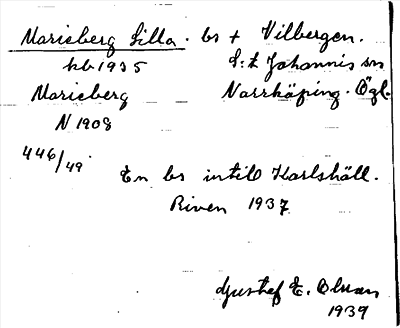 Marieberg Lilla. bs + Vilbergen.
kb 1935 S:t Johannis sn
Marieberg Norrköping. Ögl.
N 1908
446/49.
En bs intill Karlshäll.
Riven 1937
Gustaf E. Olman
1939